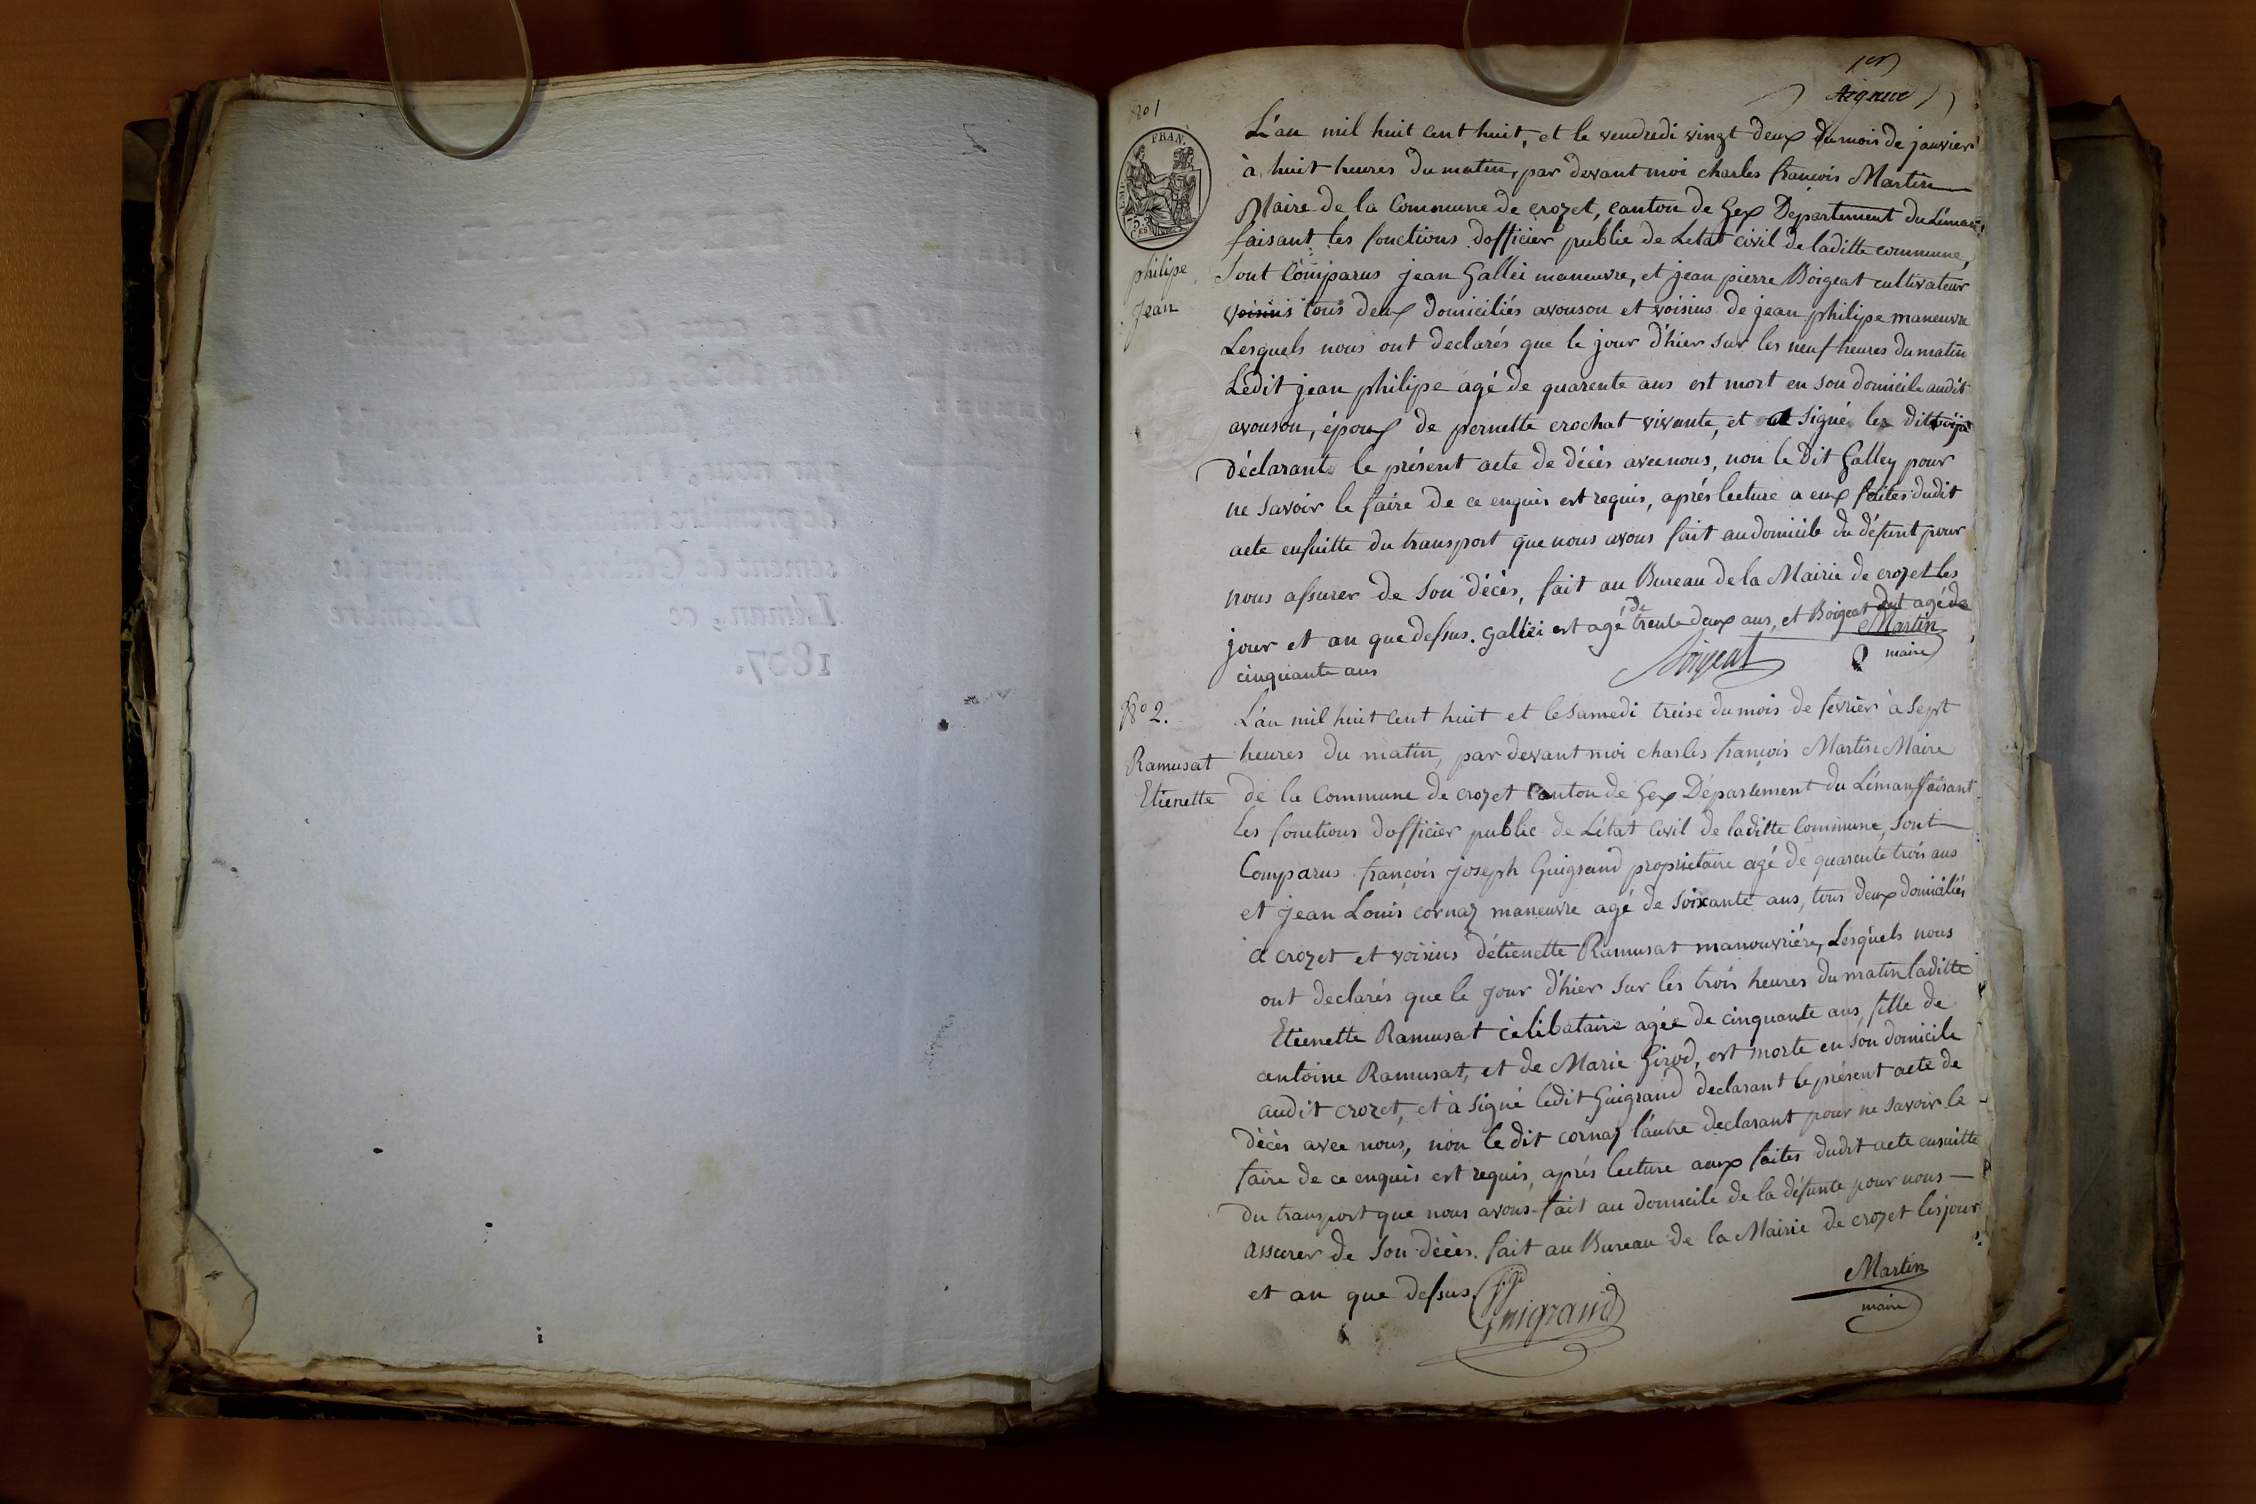 1er
N° 1
FRAN.
philipe
Jean
L'an mil huit cent huit, et le vendredi vingt deux du mois de janvier
à huit heures du matin, par devant moi charles françois Martin
Maire de la Commune de crozet, canton de Gex Département du Léman,
faisant les fonctions d'officier public de Letat civil de laditte commune,
Sont Comparus jean Galléi maneuvre, et jean pierre Boigeat cultivateur
voisins tous deux domiciliés avouson et voisins de jean philipe maneuvre
Lesquels nous ont declarés que le jour d'hier sur les neuf heures du matin
Ledit jean philipe agé de quarente ans est mort en son domicile audit
avouson, époux de pernette crochat vivante, et signé les dit
déclarants le présent acte de décès avec nous, non le dit Galley pour
ne savoir le faire de ce enquis est requis, aprés lecture a eux faites dudit
acte ensuitte du transport que nous avons fait au domicile du défunt pour
nous assurer de son décès, fait au Bureau de la Mairie de crozet les
jour et an que dessus. Galléi est agé de trente deux ans, et Boigeat est agé de
cinquante ans
Boigeat
Martin
maire
N° 2.
Ramusat
Etienette
L'an mil huit cent huit et le samedi treise du mois de fevrier à sept
heures du matin, par devant moi charles françois Martin Maire
de la Commune de crozet Canton de Gex Département du Léman faisant
les fonctions d'officier public de L'état Civil de laditte Commune, sont
Comparus françois joseph Guigrand proprietaire agé de quarente trois ans
et jean Louis cornaz maneuvre agé de soixante ans, tous deux domiciliés
a crozet et voisins d'étienette Ramusat manouvriére, Lesquels nous
ont declarés que le jour d'hier sur les trois heures du matin laditte
Etienette Ramusat célibataire agée de cinquante ans, fille de
antoine Ramusat, et de Marie Girod, est morte en son domicile
audit crozet, et à signé ledit Guigrand declarant le présent acte de
décès avec nous, non le dit cornaz l'autre declarant pour ne savoir le
faire de ce enquis est requis, aprés lecture aux faites dudit acte ensuitte
du transport que nous avons fait au domicile de la défunte pour nous
assurer de son décès. fait au Bureau de la Mairie de crozet les jour
et an que dessus.
Guigrand
Martin
maire